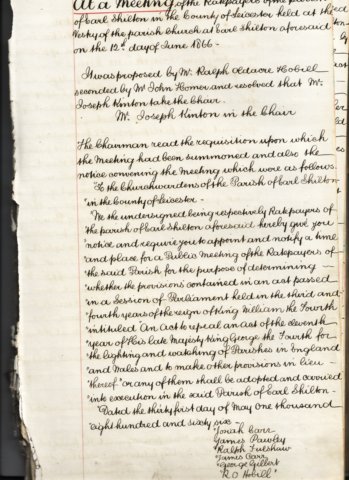 At a Meeting of the Ratepayers of the parish
of Earl Shilton in the County of Leicester held at the
Vestry of the parish Church at Earl Shilton aforesaid
on the 12th day of June 1866 -
It was proposed by Mr. Ralph Oldacre Hobill
seconded by Mr John Homer and resolved that Mr.
Joseph Kinton take the Chair.
Mr. Joseph Kinton in the Chair
The Chairman read the requisition upon which
the Meeting had been summoned and also the
notice convening the Meeting which were as follows.
"To the Churchwardens of the Parish of Earl Shilton
"in the County of Leicester -
"We the undersigned being respectively Ratepayers of
"the parish of Earl Shilton aforesaid hereby give you
"notice and require you to appoint and notify a time
"and place for a Public Meeting of the Ratepayers of
"the said Parish for the purpose of determining —
"whether the provisions contained in an act passed
"in a Session of Parliament held in the third and
"fourth years of the reign of King William the Fourth
"intituled An Act to repeal an act of the eleventh
"year of His late Majesty King George the Fourth for
"the lighting and watching of Parishes in England
"and Wales and to make other provisions in lieu —
"thereof" or any of them shall be adopted and carried
"into execution in the said Parish of Earl Shilton -
"Dated the thirty first day of May One thousand
"eight hundred and sixty six -
"Jonah Carr
"James Pawley
"Ralph Fulshaw
"James Carr
"George Gilbert
"R O Hobill"